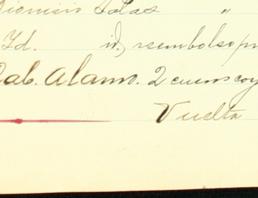 Dionisio Salas "
Id. id, reembolso
Gab. Alam. 2 cueros
Vuelta